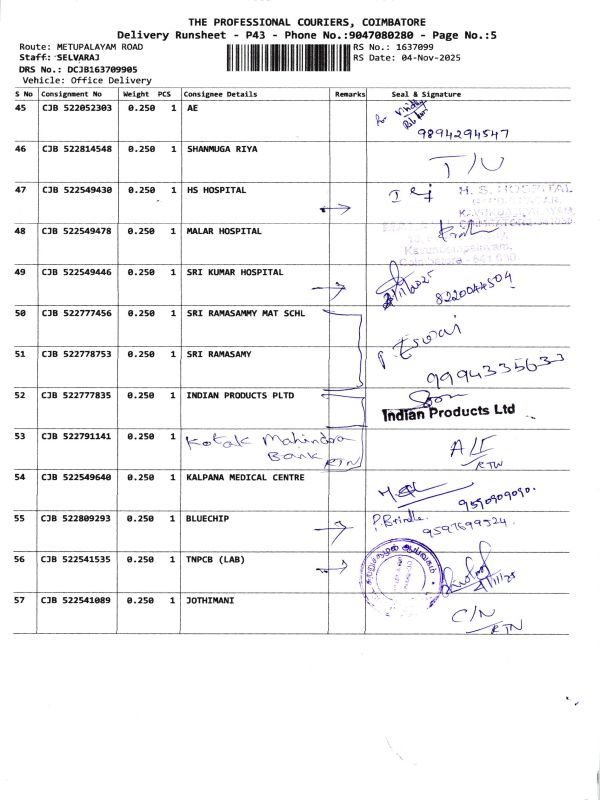 THE PROFESSIONAL COURIERS, COIMBATORE
Delivery Runsheet - P43 - Phone No.:9047080280 - Page No.:5
Route: METUPALAYAM ROAD RS No.: 1637099
Staff: SELVARAJ RS Date: 04-Nov-2025
DRS No.: DCJB163709905
Vehicle: Office Delivery
S No Consignment No Weight PCS Consignee Details Remarks Seal & Signature
45 CJB 522052303 0.250 1 AE
9894294547
46 CJB 522814548 0.250 1 SHANMUGA RIYA T/U
47 CJB 522549430 0.250 1 HS HOSPITAL H. S. HOSPITAL
48 CJB 522549478 0.250 1 MALAR HOSPITAL
49 CJB 522549446 0.250 1 SRI KUMAR HOSPITAL
8220044504
50 CJB 522777456 0.250 1 SRI RAMASAMMY MAT SCHL
51 CJB 522778753 0.250 1 SRI RAMASAMY
9994335633
52 CJB 522777835 0.250 1 INDIAN PRODUCTS PLTD Indian Products Ltd
53 CJB 522791141 0.250 1 Kotak Mahindra
Bank RTN
54 CJB 522549640 0.250 1 KALPANA MEDICAL CENTRE
9590909090.
55 CJB 522809293 0.250 1 BLUECHIP
9597699524
56 CJB 522541535 0.250 1 TNPCB (LAB)
4/11/25
57 CJB 522541089 0.250 1 JOTHIMANI C/N
RTN